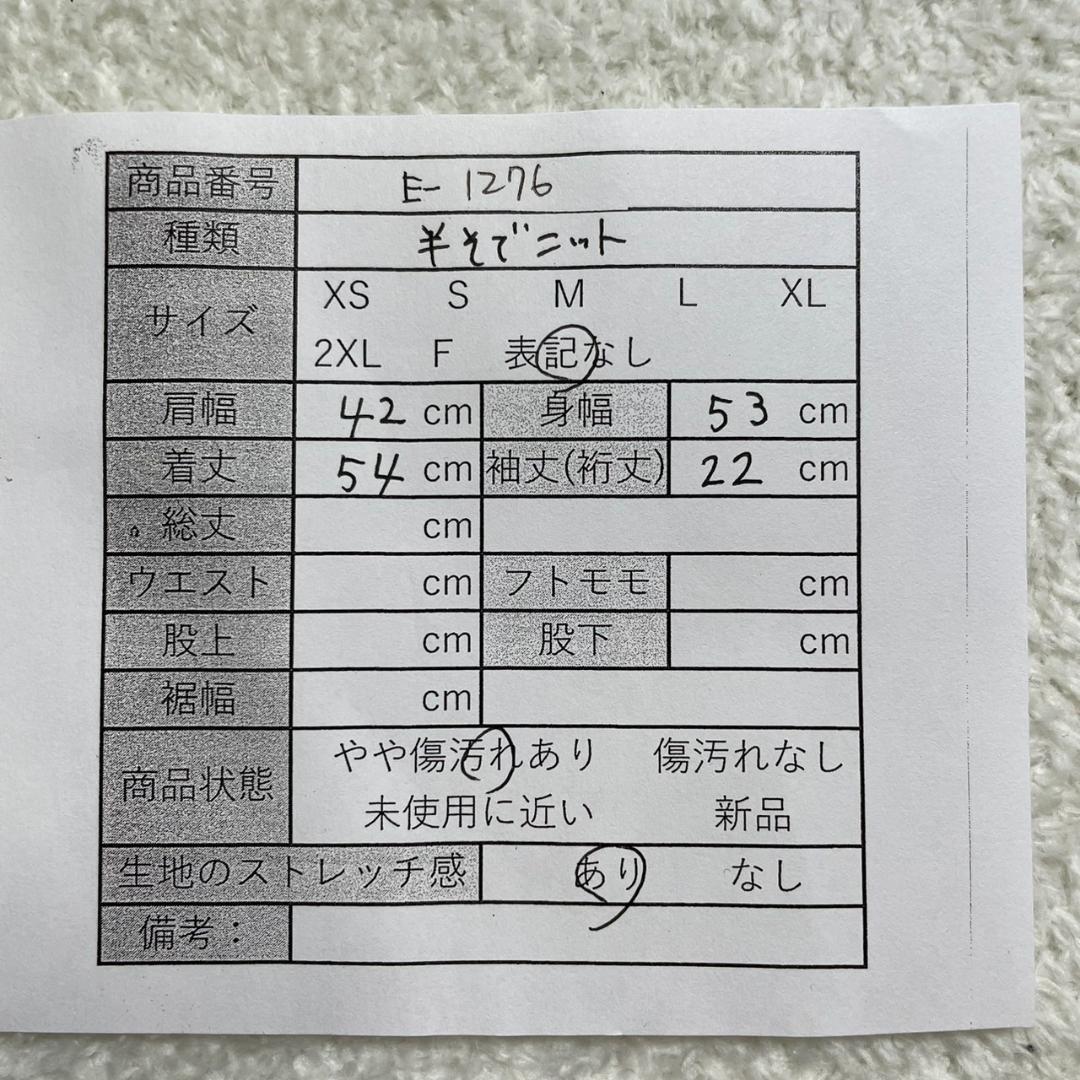 商品番号 E-1276
種類 半そでニット
サイズ XS S M L XL
2XL F 表記なし
肩幅 42 cm 身幅 53 cm
着丈 54 cm 袖丈(裄丈) 22 cm
総丈 cm
ウエスト cm フトモモ cm
股上 cm 股下 cm
裾幅 cm
商品状態 やや傷汚れあり 傷汚れなし
未使用に近い 新品
生地のストレッチ感 あり なし
備考：